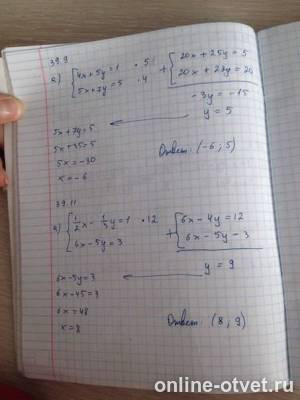 39.9
а) { 4x + 5y = 1 · 5 + { 20x + 25y = 5
5x + 7y = 5 · 4 20x + 28y = 20
-3y = -15
y = 5
5x + 7y = 5
5x + 35 = 5
5x = -30
x = -6
Ответ: (-6 ; 5)
39.11
а) { 1/2 x - 1/3 y = 1 · 12 + { 6x - 4y = 12
6x - 5y = 3 6x - 5y = 3
y = 9
6x - 5y = 3
6x - 45 = 3
6x = 48
x = 8
Ответ: (8 ; 9)
online-otvet.ru